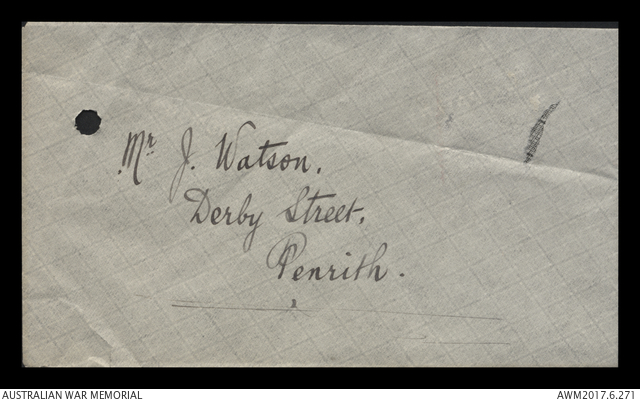 Mr J. Watson.
Derby Street,
Penrith.
AUSTRALIAN WAR MEMORIAL
AWM2017.6.271